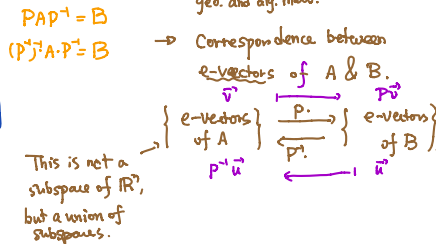 geo. and alg. mult.
PAP⁻¹ = B
(P⁻¹)⁻¹A·P⁻¹ = B
→ Correspondence between
e-vectors of A & B.
v⃗ ⟼ Pv⃗
{ e-vectors of A } P· ⇄ P⁻¹· { e-vectors of B }
P⁻¹u⃗ ⟵ u⃗
This is not a
subspace of ℝⁿ,
but a union of
subspaces.